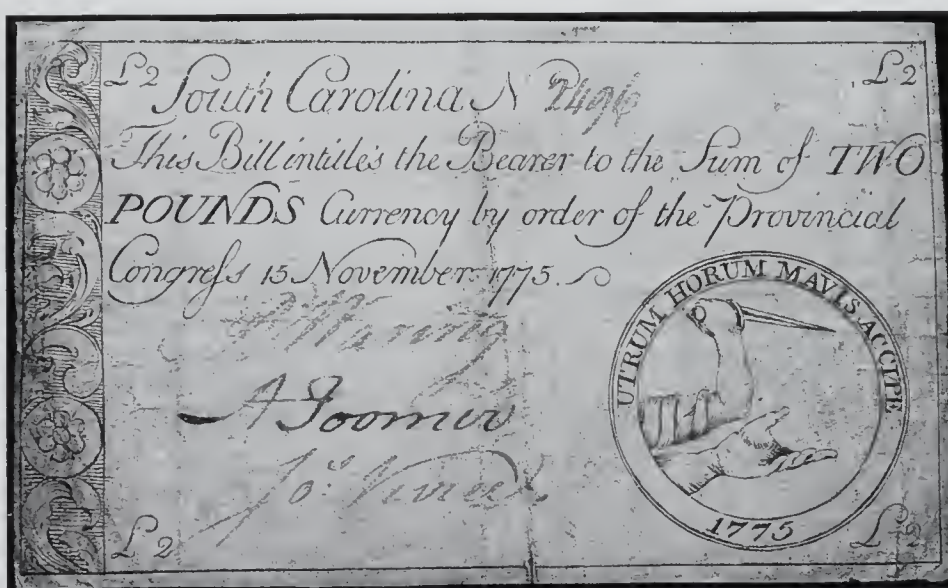 £2 £2
South Carolina N 2496
This Bill intitles the Bearer to the Sum of TWO
POUNDS Currency by order of the Provincial
Congreſs 15 November 1775.
UTRUM HORUM MAVIS ACCIPE
A Toomer
1775
£2 £2